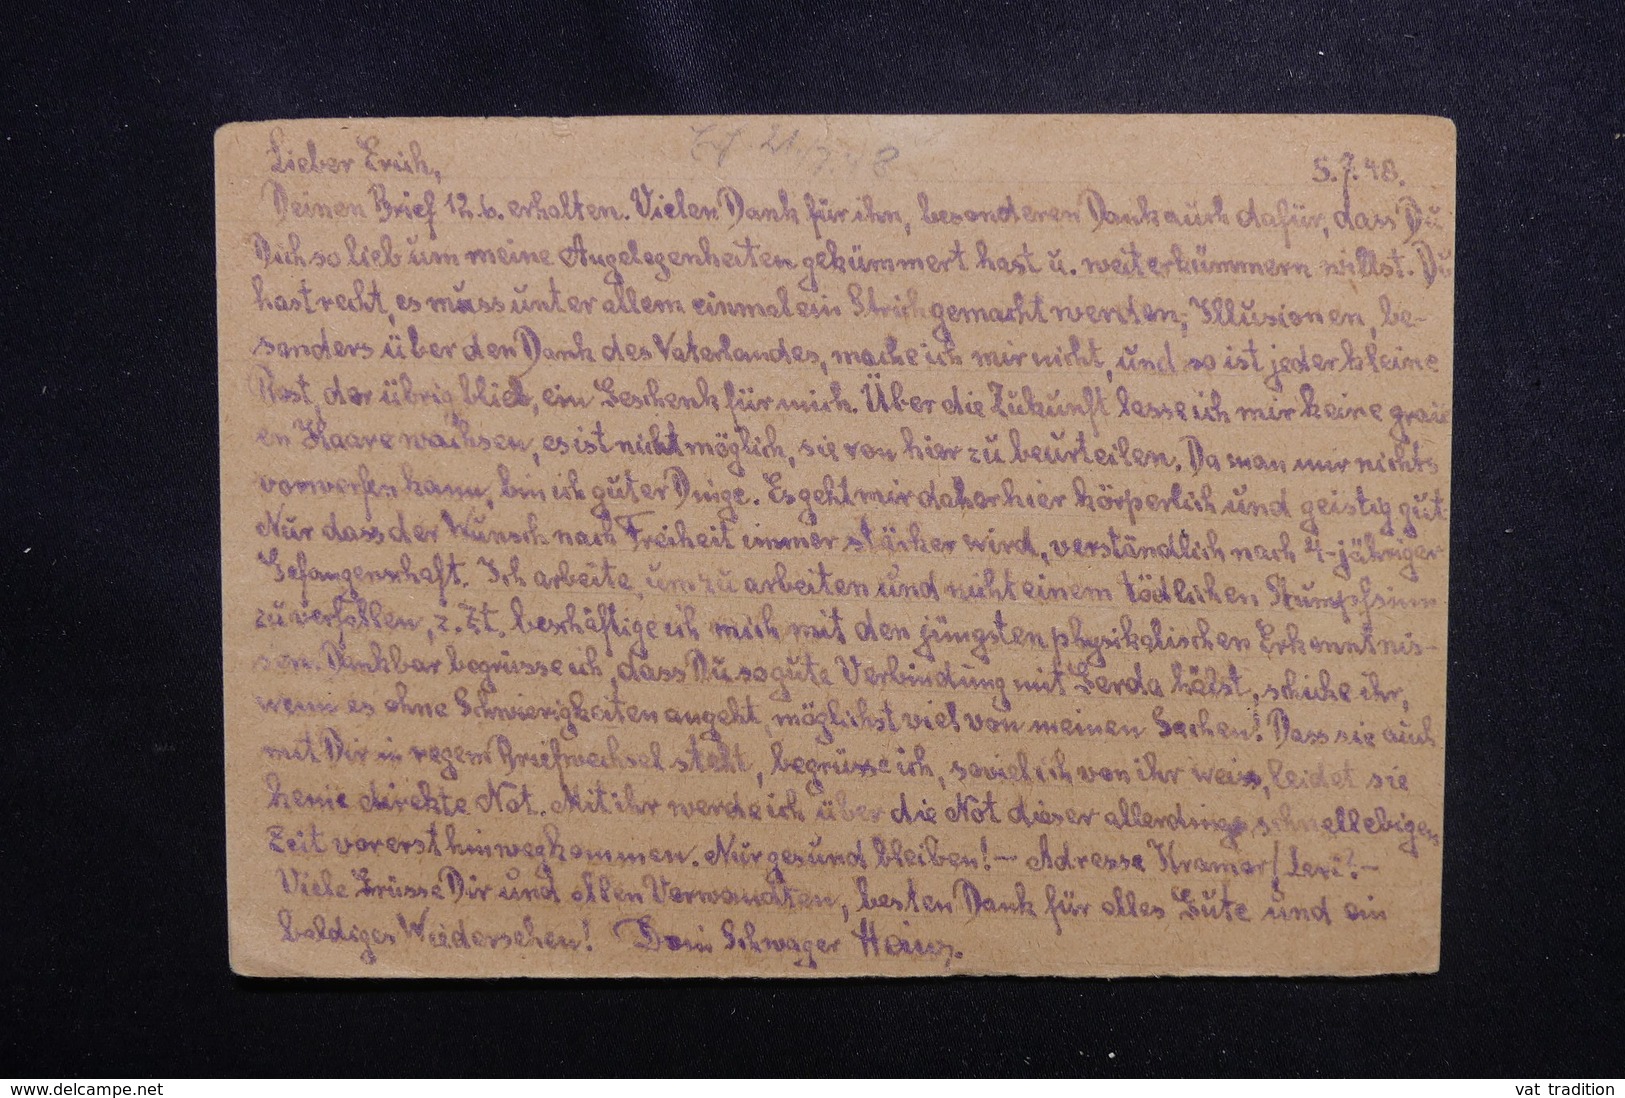 21.7.48
Lieber Erich, 5.7.48.
Deinen Brief 12.6. erhalten. Vielen Dank für ihn, besonderen Dank auch dafür, dass Du
Dich so lieb um meine Angelegenheiten gekümmert hast u. weiterkümmern willst. Du
hast recht, es muss unter allem einmal ein Strich gemacht werden; Illusionen, be-
sonders über den Dank des Vaterlandes, mache ich mir nicht, und so ist jeder kleine
Rest, der übrig blieb, ein Geschenk für mich. Über die Zukunft lasse ich mir keine grau-
en Haare wachsen, es ist nicht möglich, sie von hier zu beurteilen. Da man mir nichts
vorwerfen kann, bin ich guter Dinge. Es geht mir daher hier körperlich und geistig gut.
Nur dass der Wunsch nach Freiheit immer stärker wird, verständlich nach 4-jähriger
Gefangenschaft. Ich arbeite, um zu arbeiten und nicht einem tödlichen Stumpfsinn
zu verfallen, z. Zt. beschäftige ich mich mit den jüngsten physikalischen Erkenntnis-
sen. Dankbar begrüsse ich, dass Du so gute Verbindung mit Gerda hälst, schicke ihr,
wenn es ohne Schwierigkeiten angeht, möglichst viel von meinen Sachen! Dass sie auch
mit Dir in regem Briefwechsel steht, begrüsse ich, soviel ich von ihr weiss, leidet sie
keine direkte Not. Mit ihr werde ich über die Not dieser allerdings schnellebigen
Zeit vorerst hinwegkommen. Nur gesund bleiben! — Adresse Kramer/ —
Viele Grüsse Dir und allen Verwandten, besten Dank für alles Gute und ein
baldiges Wiedersehen! Dein Schwager Heinz.
www.delcampe.net vat tradition